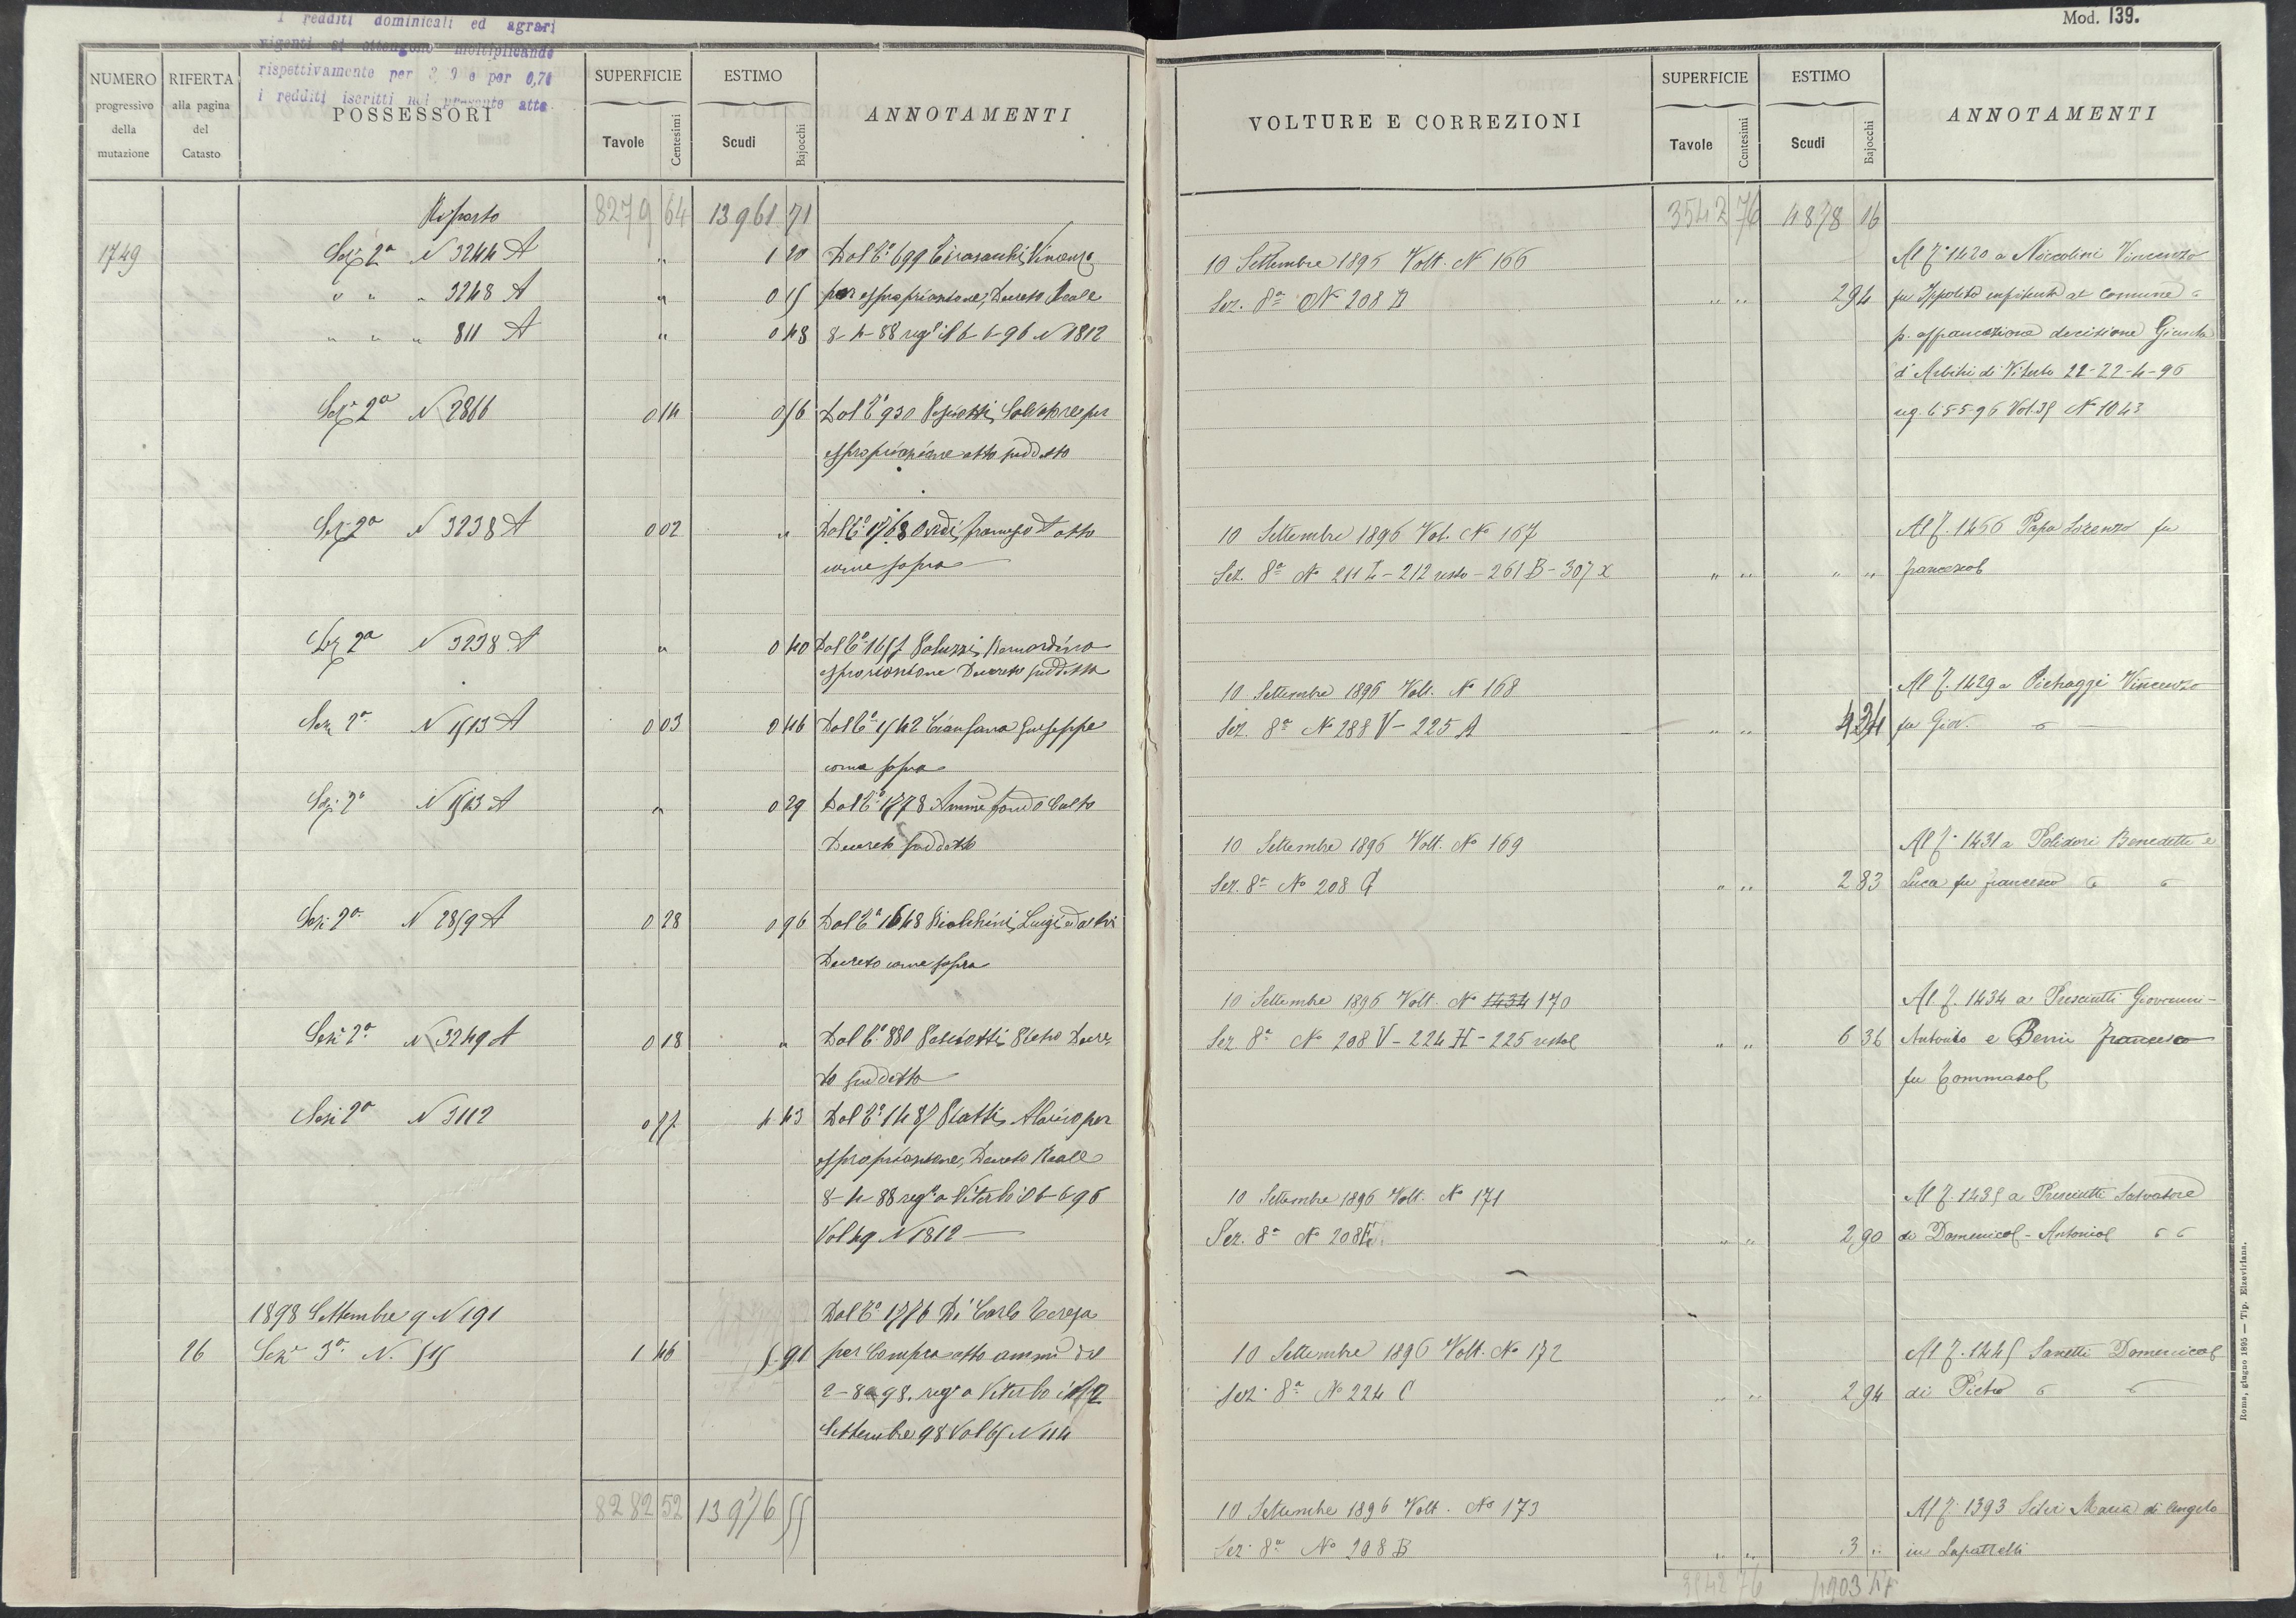 I redditi dominicali ed agrari
vigenti si ottengono moltiplicando
rispettivamente per e per 0,70
i redditi iscritti nel presente atto.
NUMERO progressivo della mutazione
RIFERTA alla pagina del Catasto
POSSESSORI
SUPERFICIE Tavole Centesimi
ESTIMO Scudi Bajocchi
ANNOTAMENTI
Riporto 8279 64 13961 71
1749 Sez 2ª N 3244 A " 1 20 Dal Cº 699 Vincenzo
" " " 3248 A " 0 15 per espropriazione, Decreto Reale
" " " 811 A " 0 43 8-4-88 regº il 6-6-96 N 1812
Sezº 2ª N 2866 0 14 0 56 Dal Cº 930 Salvatore per
espropriazione atto suddetto
Sezº 2ª N 3238 A 0 02 " Dal Cº 1768 Francesco atto
come sopra
Sez 2ª N 3238 A " 0 40 Dal Cº 1657 Paluzzi Bernardino
espropriazione Decreto suddetto
Sez 2ª N 1513 A 0 03 0 46 Dal Cº 1542 Cianfana Giuseppe
come sopra
Sezº 2ª N 1513 A " 0 29 Dal Cº 1778 Amme fondo Culto
Decreto suddetto
Sezº 2ª N 2859 A 0 28 0 96 Dal Cº 1648 Luigi ed altri
Decreto come sopra
Sezº 2ª N 3249 A 0 18 " Dal Cº 880 Pasciotti Pietro Decre
to suddetto
Sezº 2ª N 3112 0 77 4 43 Dal Cº 1485 Piatti Alarico per
espropriazione, Decreto Reale
8-4-88 regº a Viterbo il 6-6-96
Vol 49 N 1812
1898 Settembre 9 N 191 Dal Cº 1776 Di Carlo Teresa
26 Sezº 3ª N. 515 1 46 5 91 per Compra atto ammº del
2-8-98. regº a Viterbo il 2
Settembre 98 Vol 65 N 114
8282 52 13976 55
Mod. 139.
VOLTURE E CORREZIONI
SUPERFICIE Tavole Centesimi
ESTIMO Scudi Bajocchi
ANNOTAMENTI
3542 76 4878 16
10 Settembre 1896 Volt. Nº 166 Al f. 1420 a Niccolini Vincenzo
Sez. 8ª Nº 208 " " 2 94 fu Ippolito enfiteuta al Comune
p. affrancazione decisione Giunta
d'Arbitri di Viterbo 22-22-4-96
reg. li 5-5-96 Vol. 39 Nº 1043
10 Settembre 1896 Vol. Nº 167 Al f. 1466 Papa Lorenzo fu
Sez. 8ª Nº 211 L - 212 resto - 261 B - 307 x " " " " Francesco
10 Settembre 1896 Volt. Nº 168 Al f. 1429 a Pietraggi Vincenzo
Sez. 8ª Nº 288 V - 225 A " " 4 34 fu Giov.
10 Settembre 1896 Volt. Nº 169 Al f. 1431 a Polidori Benedetto e
Sez. 8ª Nº 208 G " " 2 83 Luca fu Francesco
10 Settembre 1896 Volt. Nº 1434 170 Al f. 1434 a Presciutti Giovanni-
Sez 8ª Nº 208 V - 224 H - 225 resto " " 6 36 Antonio e Berni Francesco
fu Tommaso
10 Settembre 1896 Volt. Nº 171 Al f. 1435 a Presciutti Salvatore
Sez. 8ª Nº 208 E " " 2 90 di Domenico - Antonio
10 Settembre 1896 Volt. Nº 172 Al f. 1445 Sanetti Domenico
Sez. 8ª Nº 224 C " " 2 94 di Pietro
10 Settembre 1896 Volt. Nº 173 Al f. 1393 Silvi Maria di Angelo
Sez. 8ª Nº 208 B " " 3 " in Lapattelli
3542 76 4903 47
Roma, giugno 1895 — Tip. Elzeviriana.